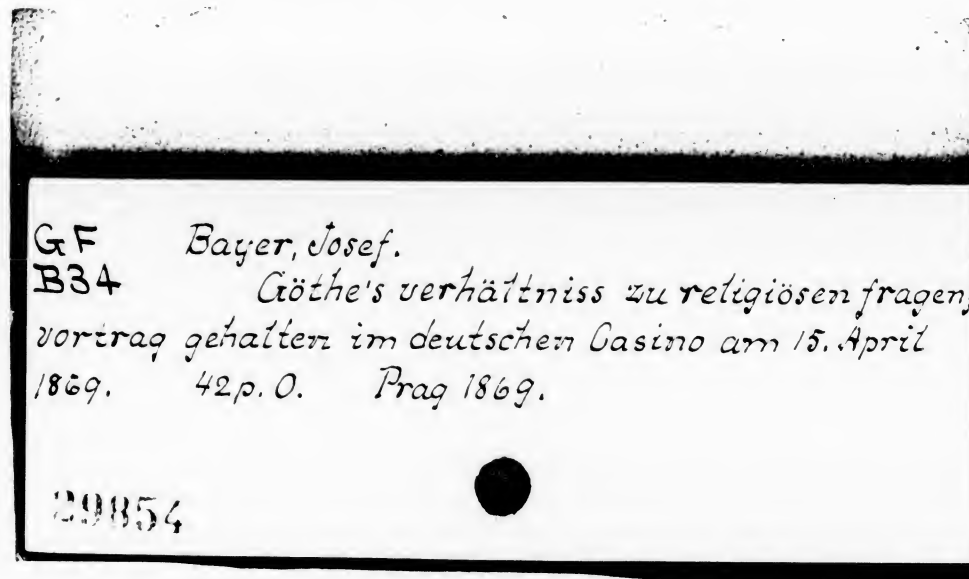 GF Bayer, Josef.
B34 Göthe's verhältniss zu religiösen fragen,
vortrag gehalten im deutschen Casino am 15. April
1869. 42p. O. Prag 1869.
29854